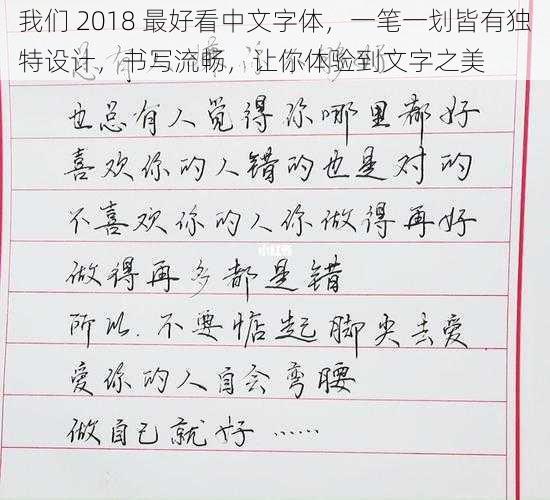 我们 2018 最好看中文字体，一笔一划皆有独
特设计，书写流畅，让你体验到文字之美
也总有人觉得你哪里都好
喜欢你的人错的也是对的
不喜欢你的人你做得再好
小红书
做得再多都是错
所以.不要惦起脚尖去爱
爱你的人自会弯腰
做自己就好 ……